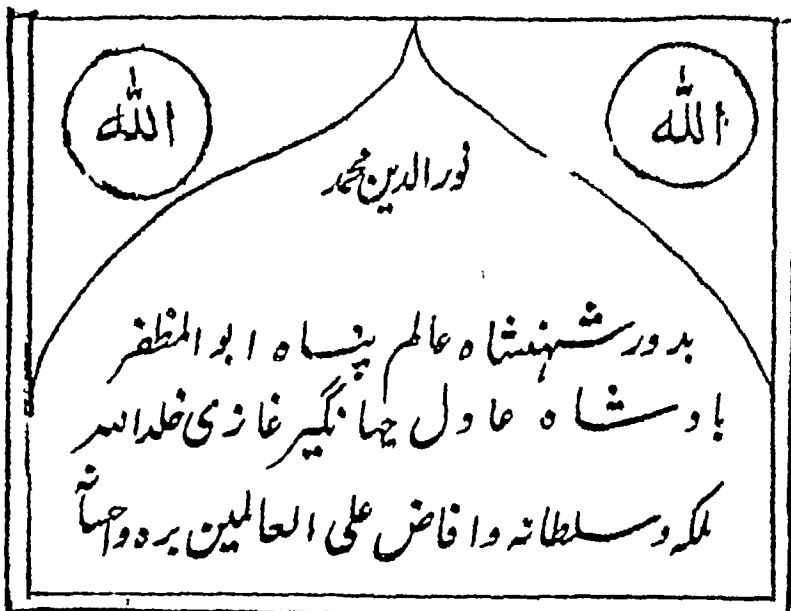 الله
الله
نورالدین محمد
بدور شہنشاہ عالم پناہ ابوالمظفر
بادشاہ عادل جہانگیر غازی خلداللہ
ملکہ وسلطانہ وافاض علی العالمین برہ واحسانہ